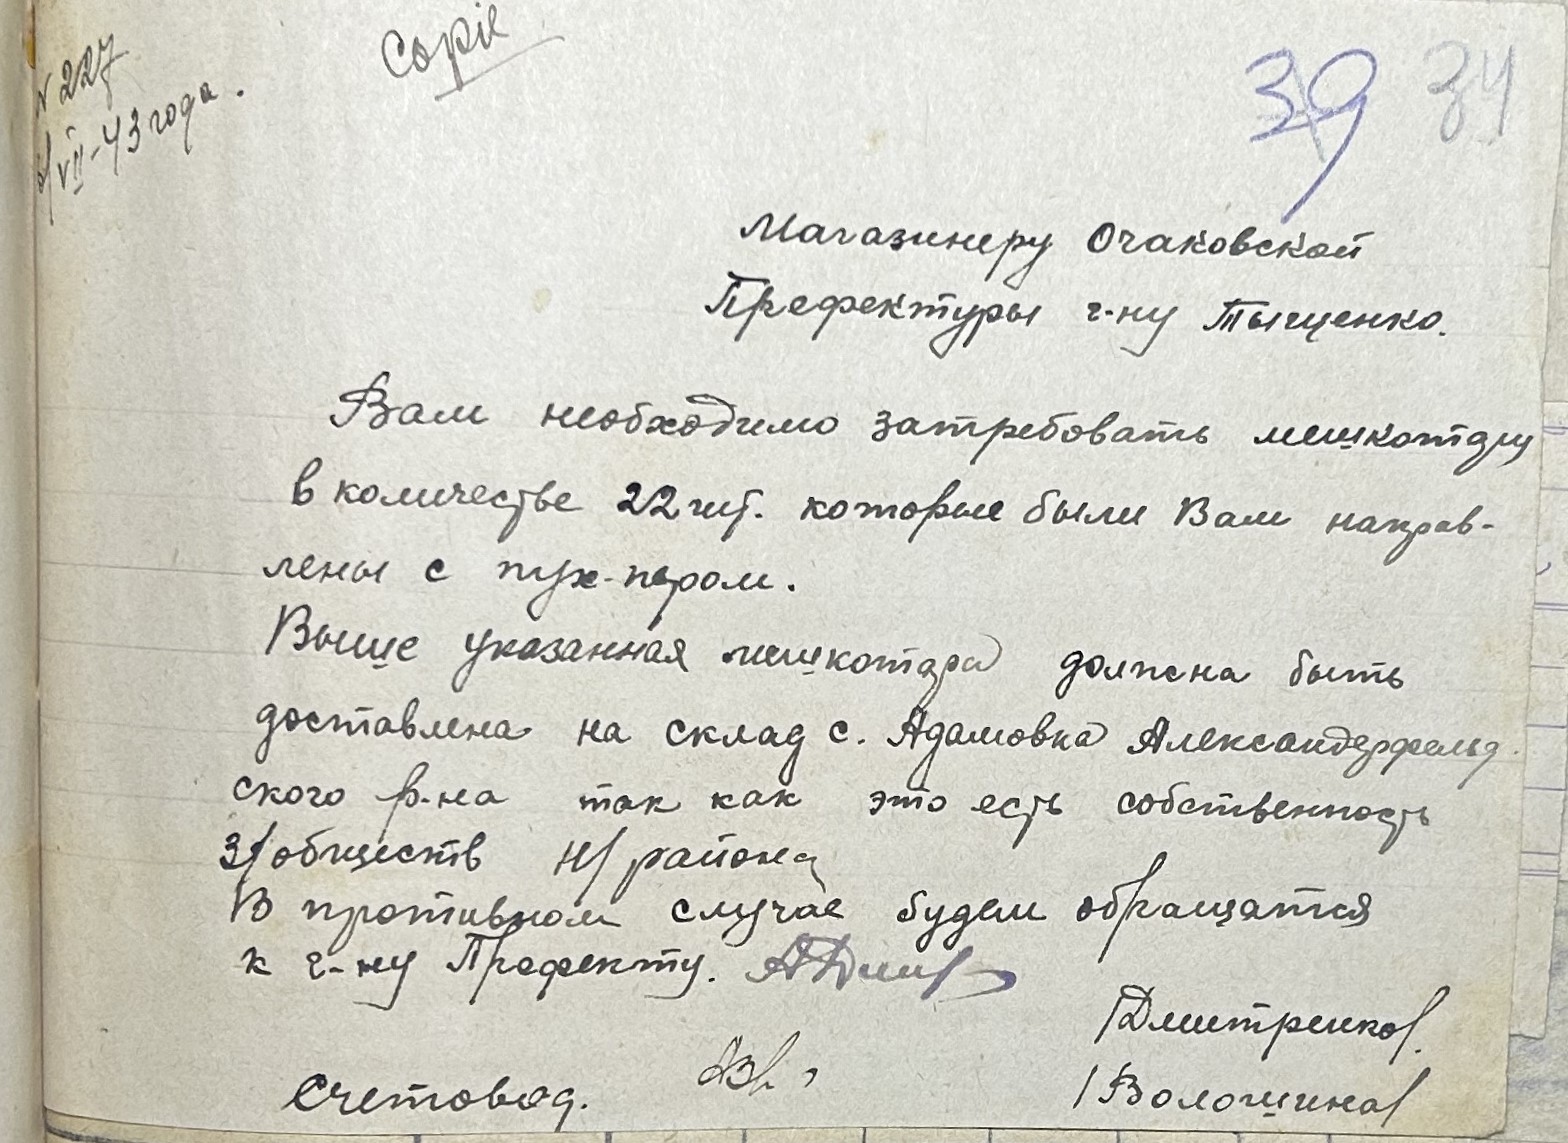 Copie
39 34
№ 227
/VII-43 года.
Магазинеру Очаковской
Префектуры г-ну Тыщенко.
Вам необходимо затребовать мешкотару
в количестве 22 шт. которые были Вам направ-
лены с пух-пером.
Выше указанная мешкотара должна быть
доставлена на склад с. Адамовка Александерфельд
ского р-на так как это есть собственность
з/обществ н/района
В противном случае будем обращатся
к г-ну Префекту.
/Дмитренко/.
Счетовод.
/Волошина/